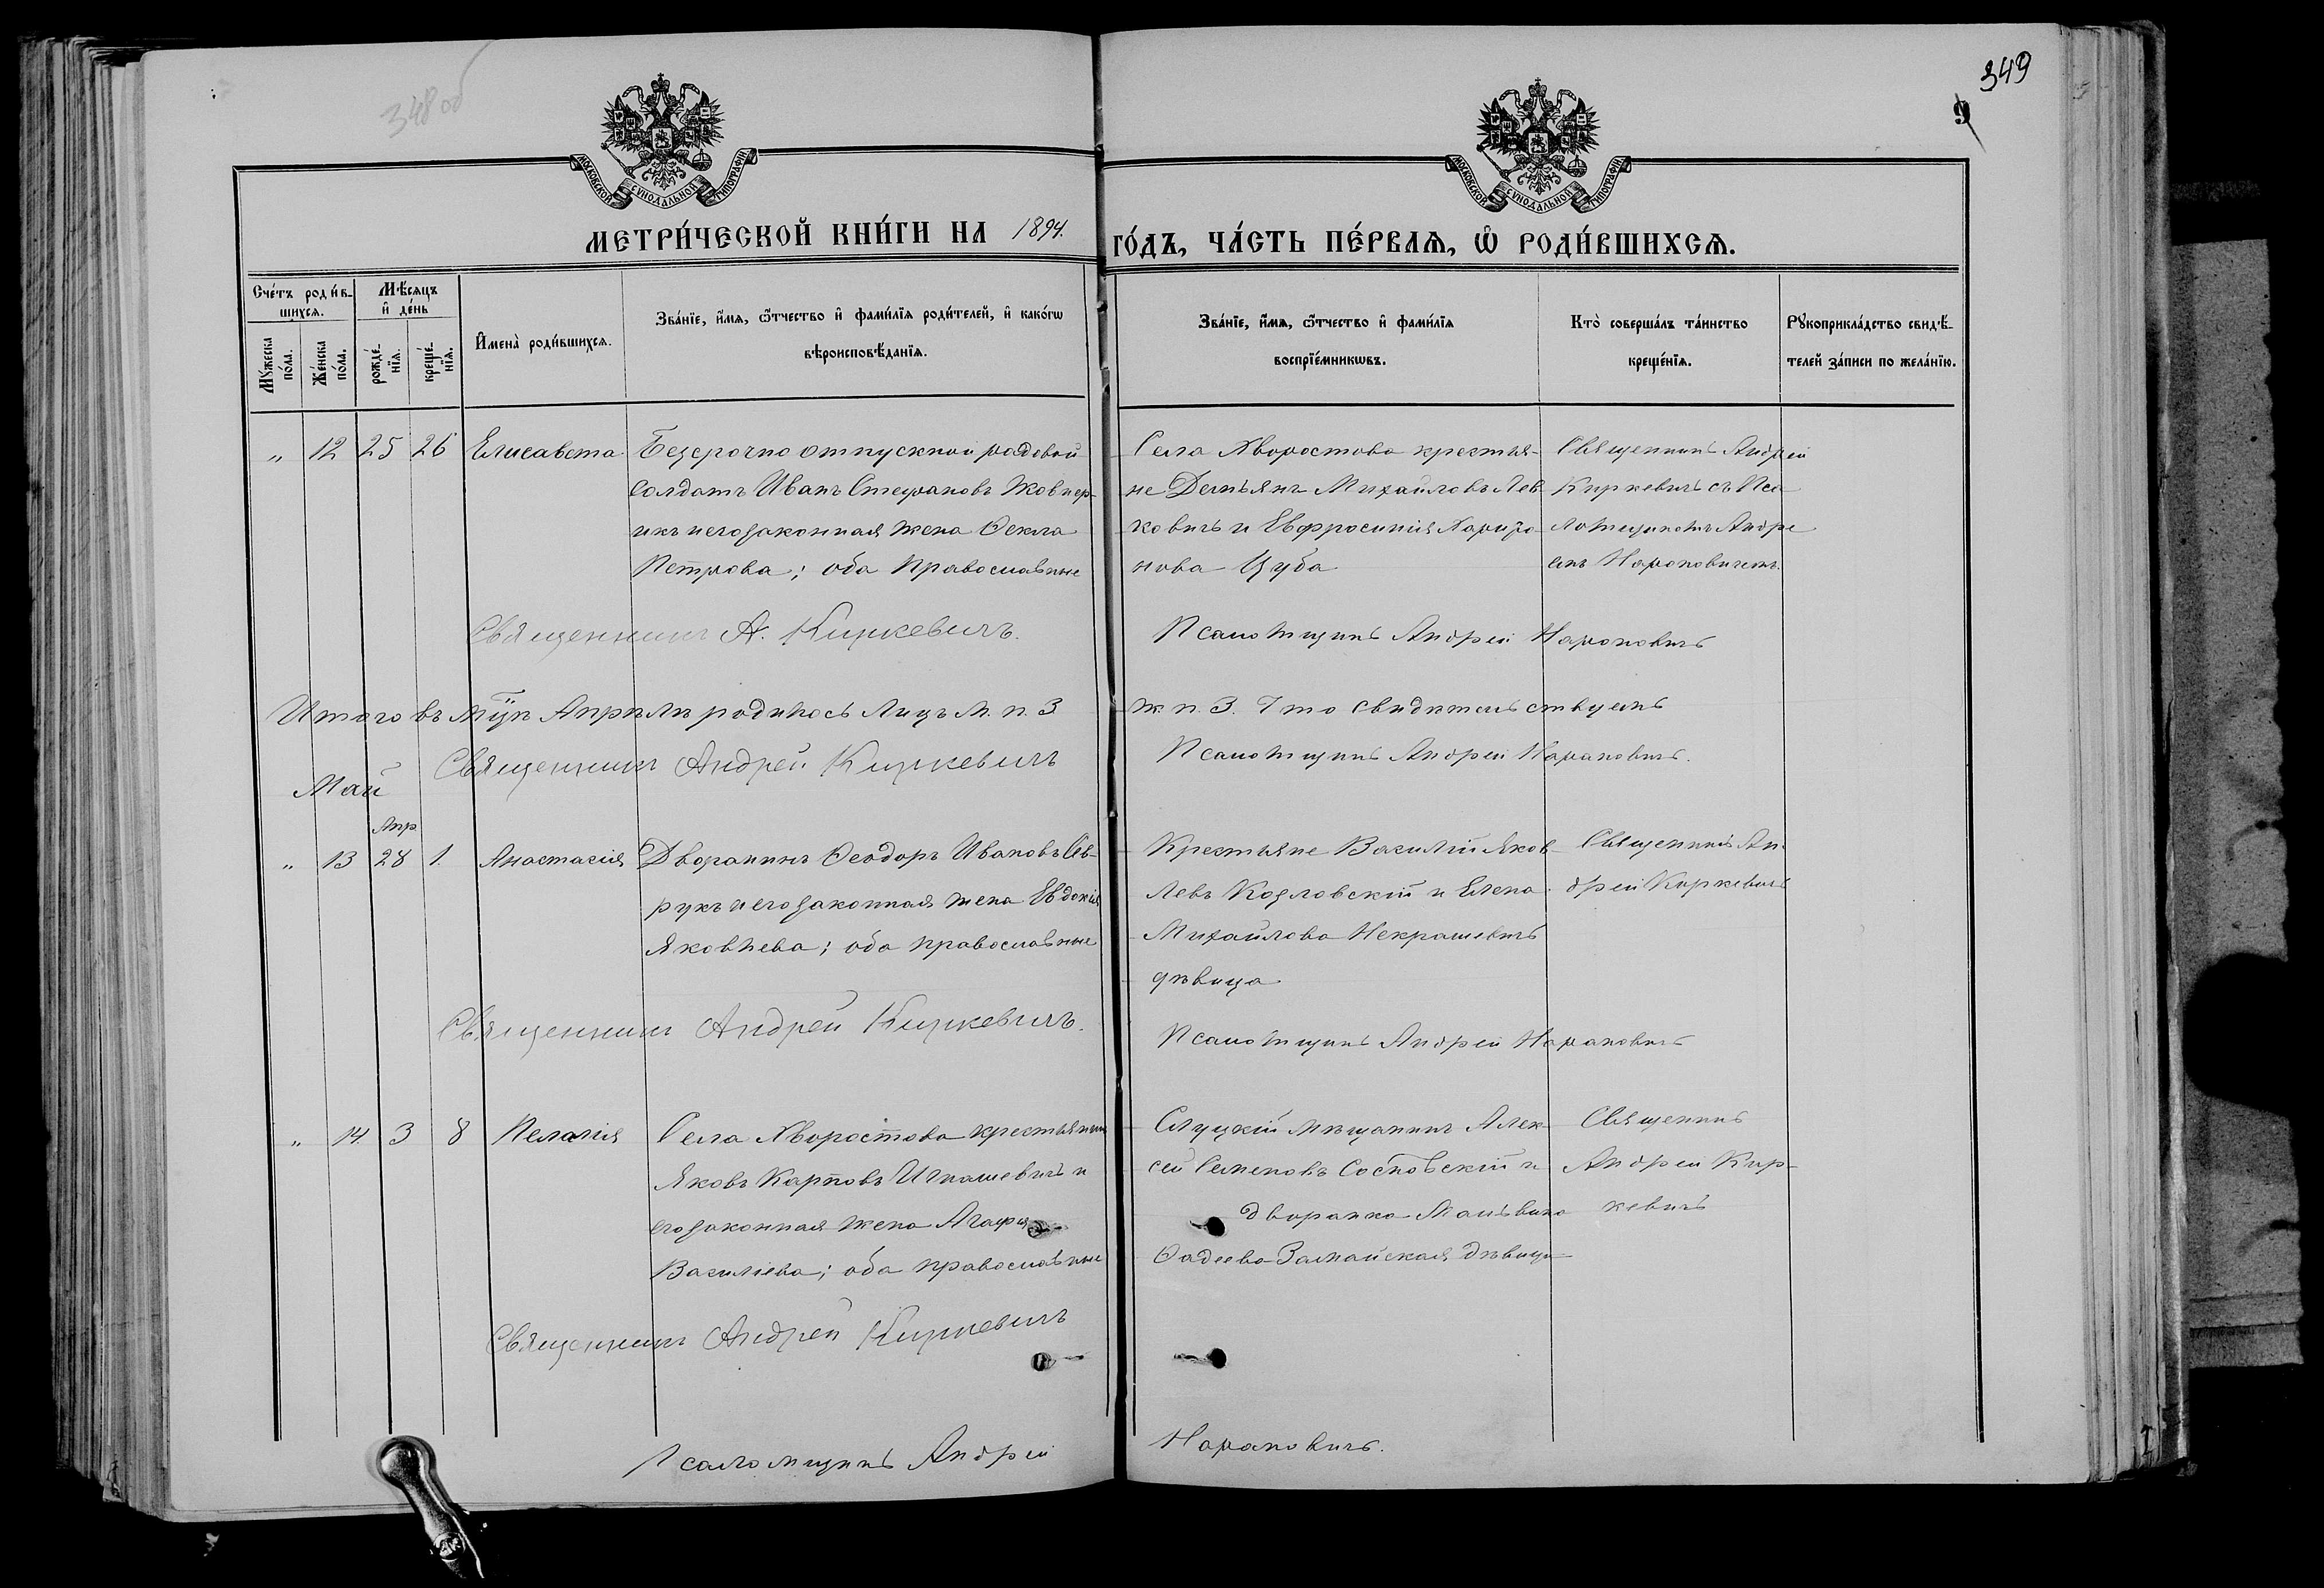 348 об
349
9
МОСКОВСКОЙ СѴНОДАЛЬНОЙ ТИПОГРАФІИ
МОСКОВСКОЙ СѴНОДАЛЬНОЙ ТИПОГРАФІИ
МЕТРИ́ЧЕСКОЙ КНИ́ГИ НА 1894. ГО́ДЪ, ЧА́СТЬ ПЕ́РВАѦ, Ѽ РОДИ́ВШИХСѦ.
Сче́тъ роди́в-
шихсѧ.
Мꙋ́жеска по́ла.
Же́нска по́ла.
Мѣ́сѧцъ
и҆ де́нь
рожде́-нїѧ.
креще́-нїѧ.
И҆мена̀ роди́вшихсѧ.
Зва́нїе, и҆́мѧ, ѻ҆́тчество и҆ фами́лїѧ роди́телей, и҆ како́гѡ
вѣроисповѣ́данїѧ.
Зва́нїе, и҆́мѧ, ѻ҆́тчество и҆ фами́лїѧ
воспрїе́мникѡвъ.
Кто̀ соверша́лъ та́инство
креще́нїѧ.
Рꙋкоприкла́дство свидѣ́-
телей за́писи по жела́нїю.
„ 12 25 26 Елисавета
Безсрочно отпускной рядовой
солдатъ Иванъ Стефановъ Жовнер-
икъ и его законная жена Ѳекла
Петрова; оба Православные
Села Хворостова крестья-
не Демьянъ Михайловъ Лев-
ковичъ и Евфросинія Харито-
нова Цуба
Священникъ Андрей
Киркевичъ съ Пса
ломщикомъ Андре
емъ Нароновичемъ.
Священникъ А. Киркевичъ.
Псаломщикъ Андрей Нароновичъ
Итого въ м-цѣ Апрѣлѣ родилось лицъ м. п. 3 ж. п. 3. Что свидѣтельствуемъ
Священникъ Андрей Киркевичъ
Псаломщикъ Андрей Нароновичъ.
Май
Апр.
„ 13 28 1. Анастасія
Дворянинъ Ѳеодоръ Ивановъ Сев-
рукъ и его законная жена Евдокія
Яковлева; оба православные
Крестьяне Василій Яков-
левъ Козловскій и Елена
Михайлова Некрашевичъ
дѣвица
Священникъ Ан-
дрей Киркевичъ
Священникъ Андрей Киркевичъ.
Псаломщикъ Андрей Нароновичъ
„ 14. 3 8 Пелагія
Села Хворостова крестьянинъ
Яковъ Карповъ Игнашевичъ и
его законная жена Агафія
Василіева; оба православные
Слуцкій мѣщанинъ Алек-
сей Семеновъ Сосновскій и
дворянка Мальвина
Ѳадеева Замайская дѣвица
Священникъ
Андрей Кир-
кевичъ
Священникъ Андрей Киркевичъ
Псаломщикъ Андрей Нароновичъ.